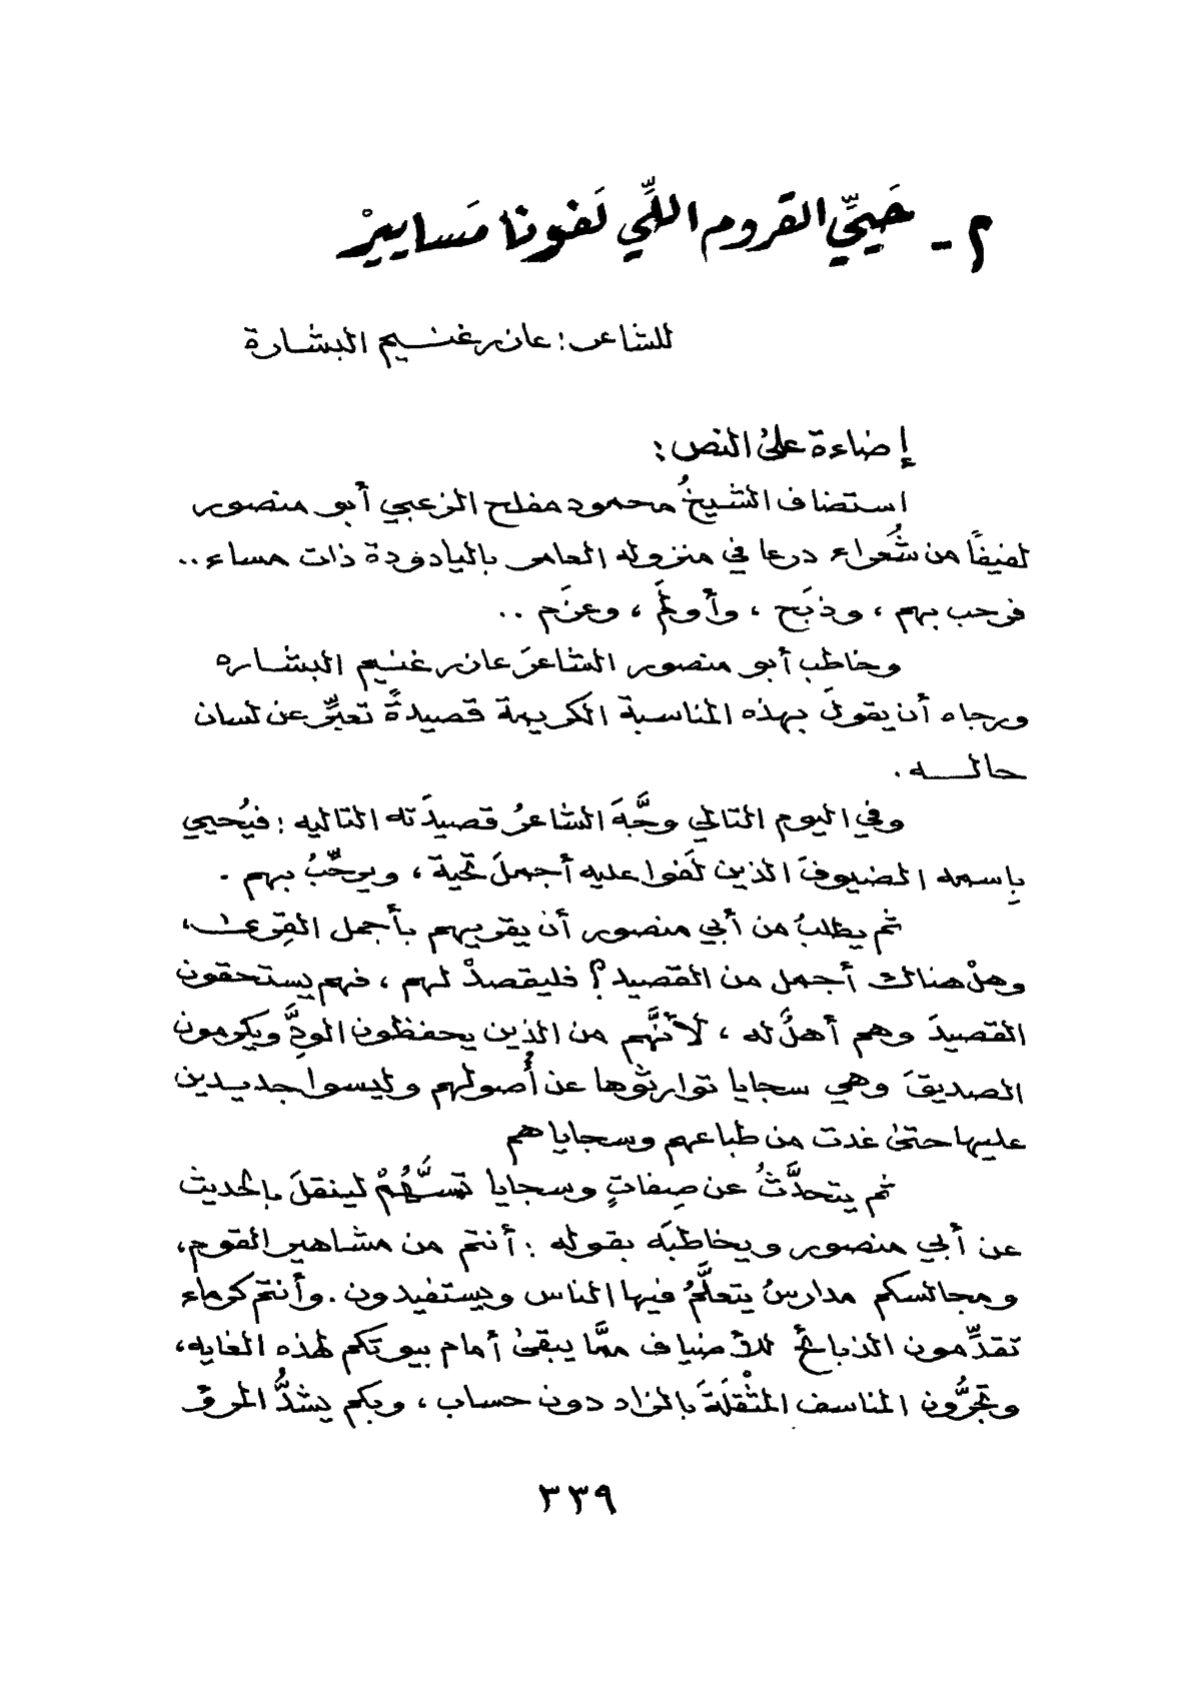 م - حَيِّي القروم اللِّي لَفونا مَساييرْ
للشاعر : عازر غنـيم البشـارة
إضاءة على النص :
استضاف الشيخُ محمود مفلح الزعبي أبو منصور
لفيفًا من شُعَراء درعا في منزوله العامر باليادودة ذات مساء ..
فرحب بهم ، وذبَح ، وأولَمَ ، وعزَم ..
وخاطب أبو منصور الشاعرَ عازر غنيم البشـاره
ورجاه أن يقولَ بهذه المناسبة الكريمة قصيدةً تعبِّر عن لسان
حالـــه .
وفي اليوم التالي وجَّهَ الشاعرُ قصيدَته التاليه : فيُحيي
بِاسمه الضيوفَ الذين لَفوا عليه أجملَ تحية ، ويرحِّبُ بهم .
ثم يطلبُ من أبي منصور أن يقريهم بأجمل القِرى ،
وهلْ هناك أجمل من القصيد ؟ فليقصدْ لهم ، فهم يستحقون
القصيدَ وهم أهلٌ له ، لأنَّهم من الذين يحفظون الودَّ ويكرمون
الصديقَ وهي سجايا توارثوها عن أُصولهم وليسوا جديدين
عليها حتى غدت من طباعهم وسجاياهم
ثم يتحدَّثُ عن صِفاتٍ وسجايا تسرُّهُمْ لينقلَ بالحديث
عن أبي منصور ويخاطبَه بقوله : أنتم من مشاهير القوم ،
ومجالسكم مدارسُ يتعلَّمُ فيها الناس ويستفيدون . وأنتم كرماء
تقدِّمون الذبائحَ للأضياف ممَّا يبقى أمام بيوتكم لهذه الغايه ،
وتجرُّون المناسف المثْقلَةَ بالزاد دون حساب ، وبكم يشدُّ المرءُ
٣٣٩